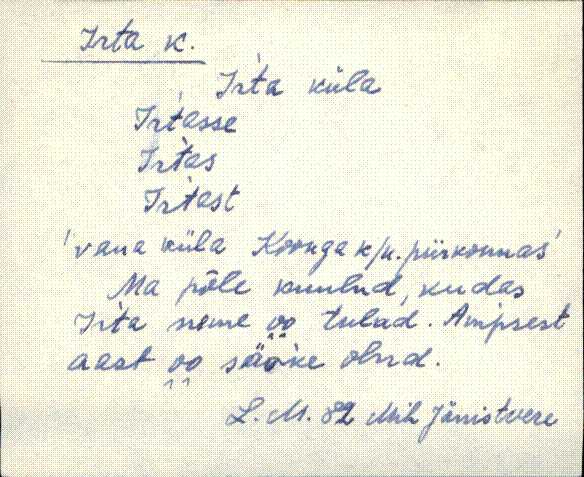 Irta k.
Irta küla
Irtasse
Irtas
Irtast
'vana küla Koonga k/n. piirkonnas'
Ma põle kuulnd, kudas
Irta neme oo tulad. Ampsest
aast oo sääke olnd.
L. M. 82 Mih Jänistvere